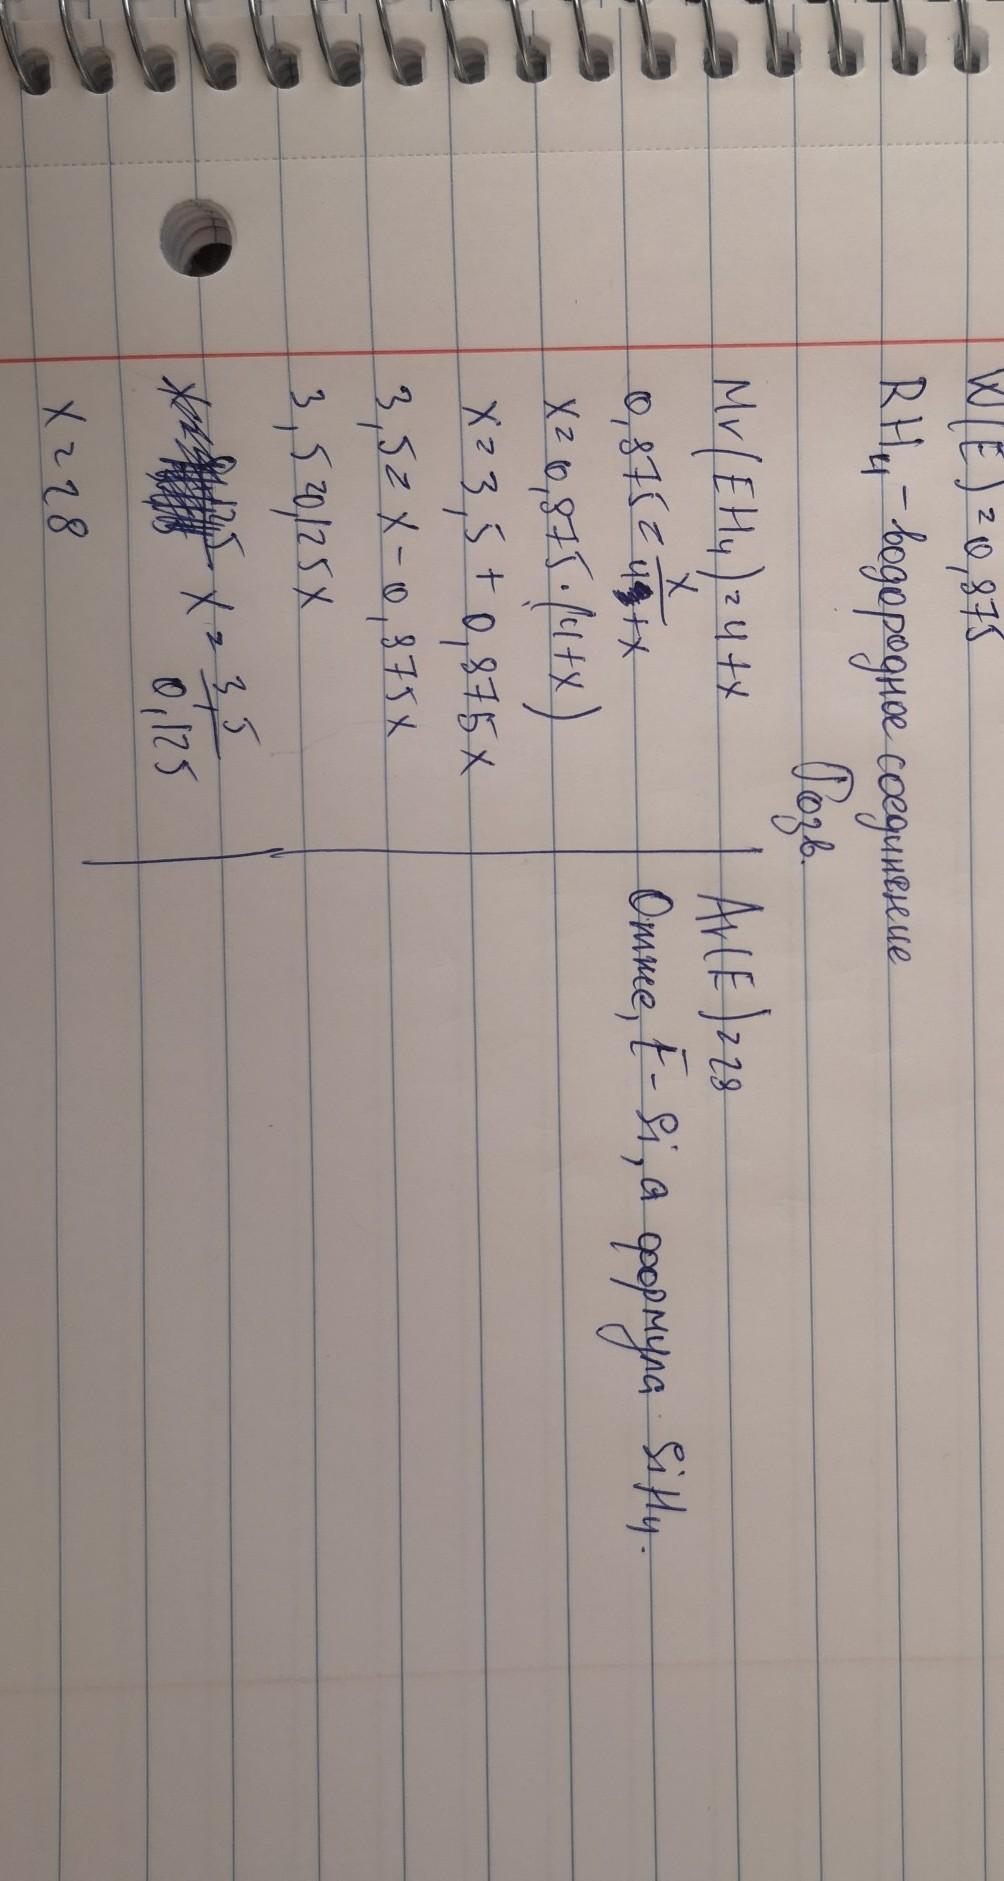 W(E)=0,875
RH₄ - водородное соединение
Розв.
Mr(EH₄)=4+x
0,875=x/4+x
x=0,875·(4+x)
x=3,5+0,875x
3,5=x-0,875x
3,5=0,125x
x=3,5/0,125
x=28
Ar(E)=28
Отже, E-Si, а формула SiH₄.